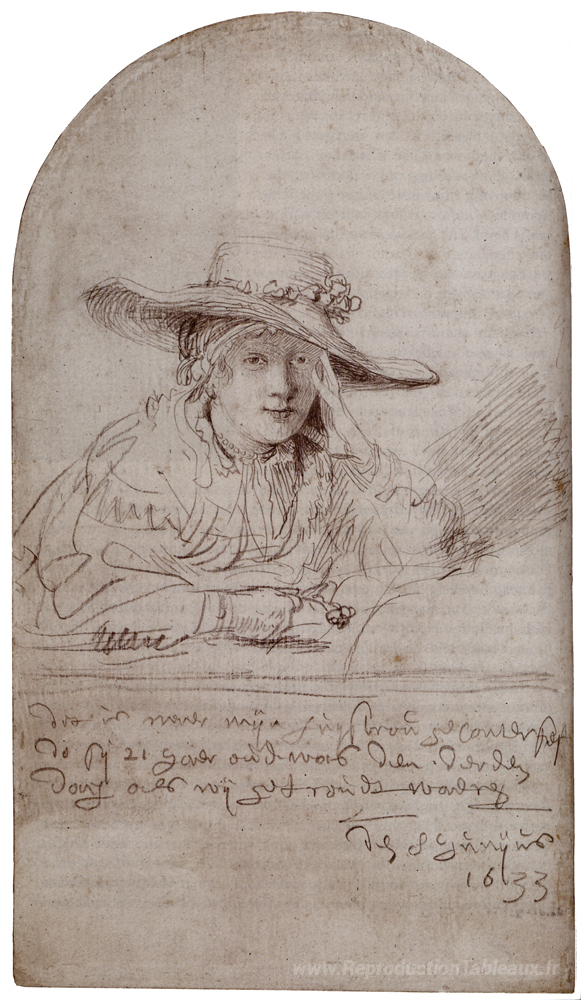 dit is naer mijn huysvrou geconterfeit
do sij 21 jaer oud was den derden
dach als wij getroudt waeren
den 8 junijus
1633
www.ReproductionTableaux.fr